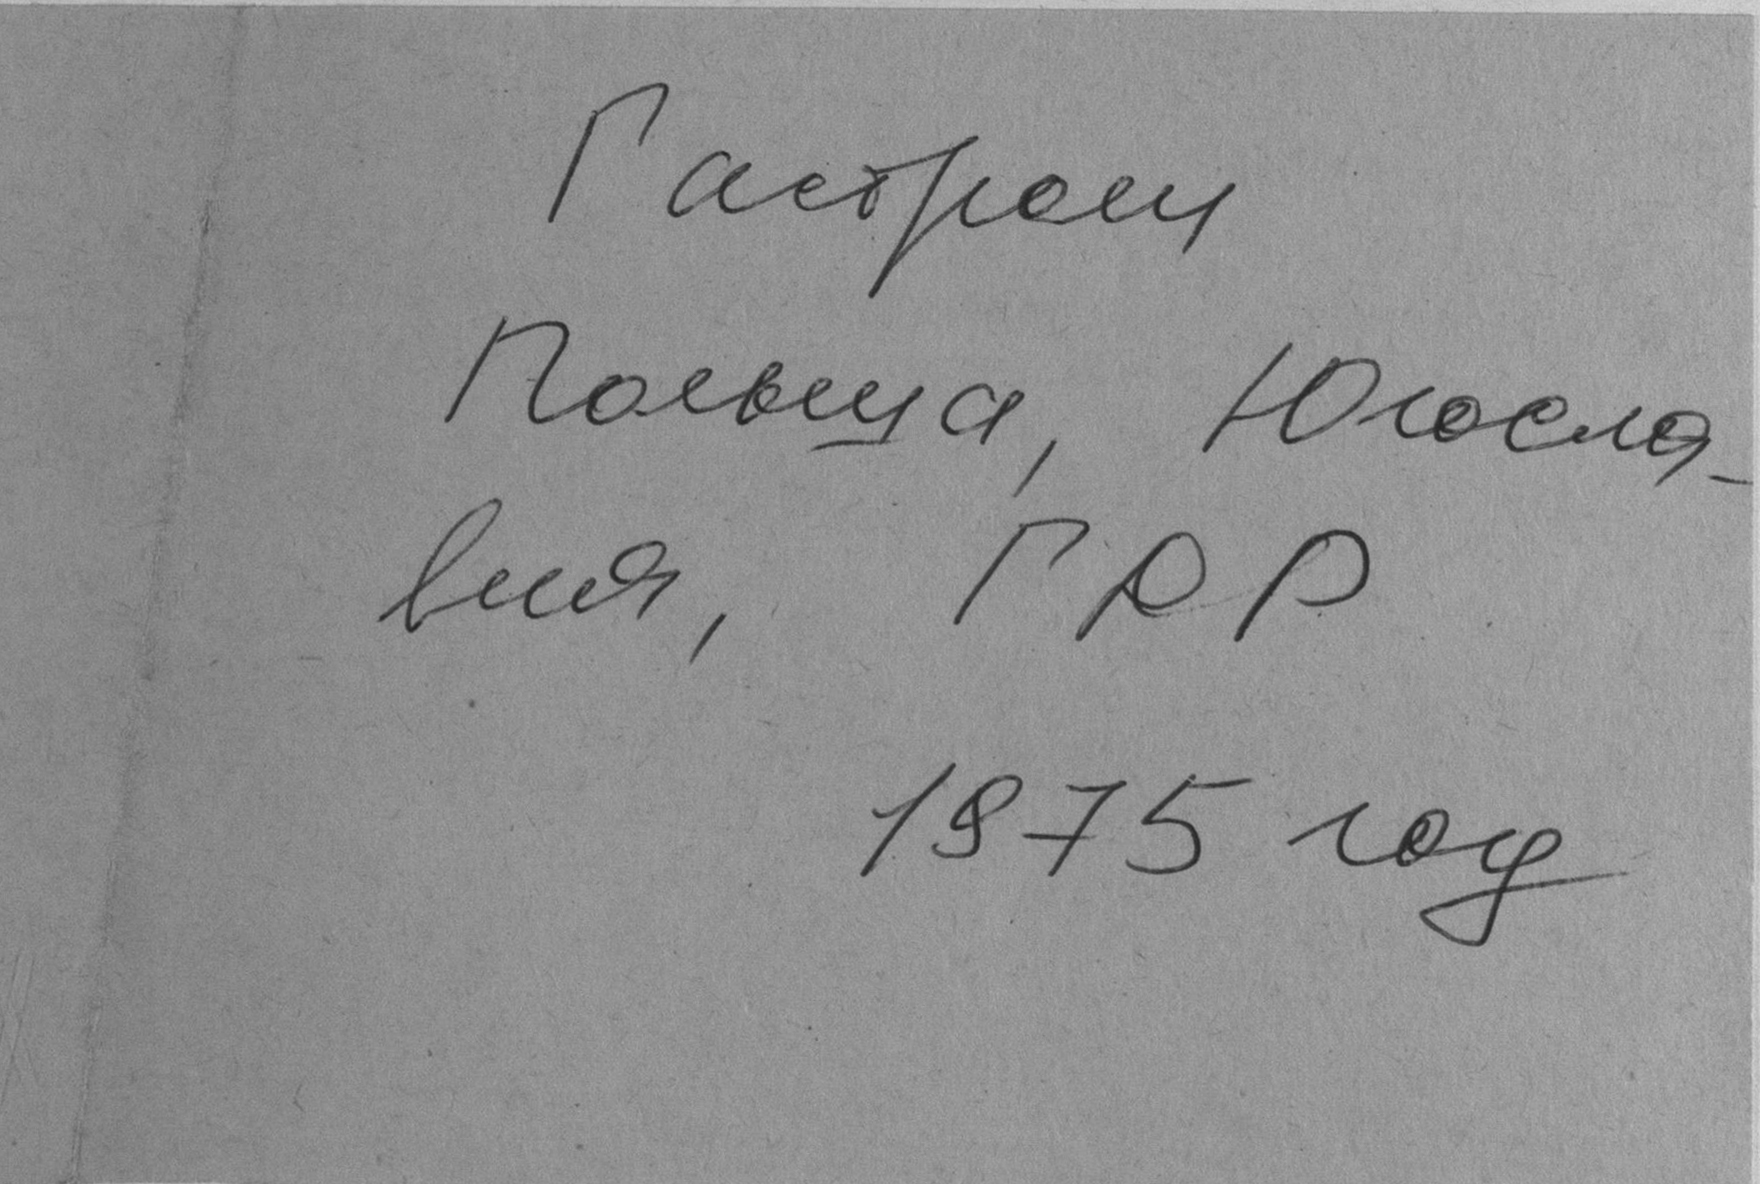 Гастроли
Польша, Югосла-
вия, ГДР
1975 год